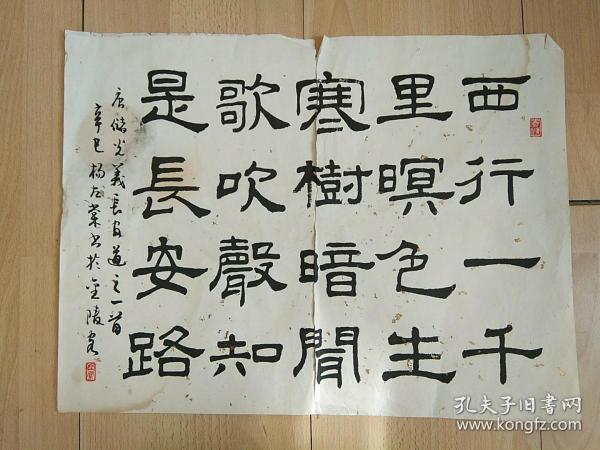 西行一千
里暝色生
寒樹暗聞
歌吹聲知
是長安路
唐儲光羲長安道之一首
辛巳楊
書於金陵
孔夫子旧书网
www.kongfz.com